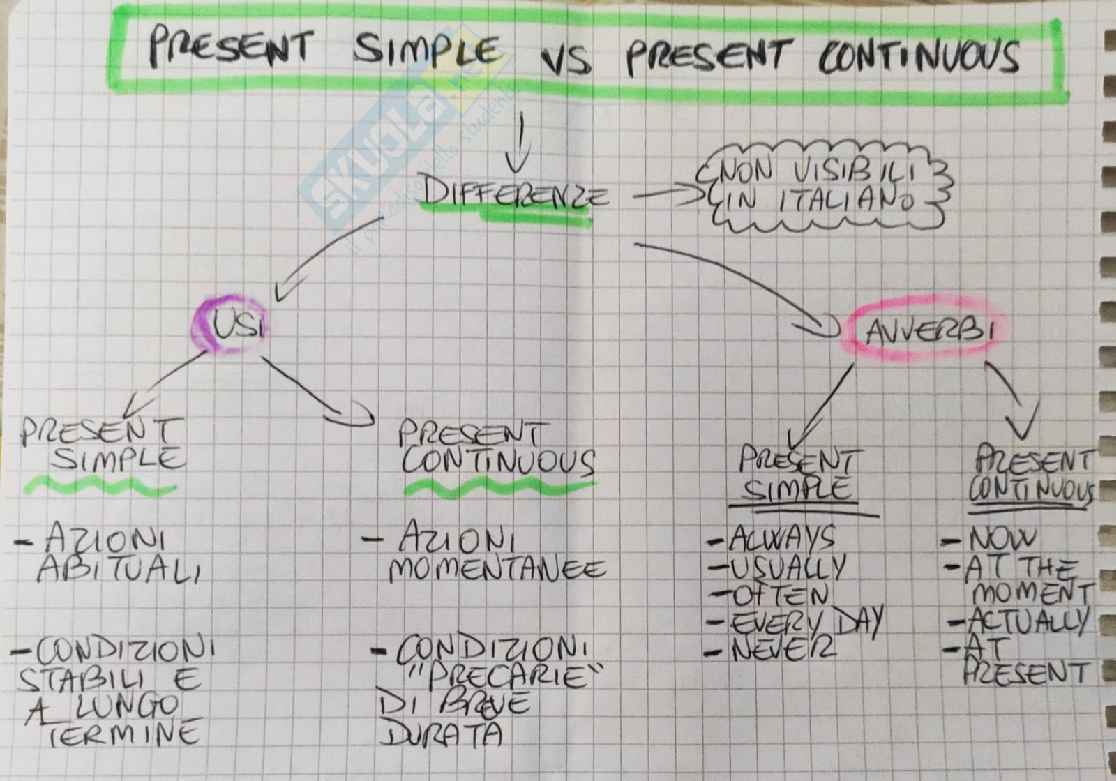 PRESENT SIMPLE VS PRESENT CONTINUOUS
SKUOLA
DIFFERENZE
NON VISIBILI
IN ITALIANO
USI
AVVERBI
PRESENT
SIMPLE
- AZIONI
ABITUALI
- CONDIZIONI
STABILI E
A LUNGO
TERMINE
PRESENT
CONTINUOUS
- AZIONI
MOMENTANEE
- CONDIZIONI
"PRECARIE"
DI BREVE
DURATA
PRESENT
SIMPLE
- ALWAYS
- USUALLY
- OFTEN
- EVERY DAY
- NEVER
PRESENT
CONTINUOUS
- NOW
- AT THE
MOMENT
- ACTUALLY
- AT
PRESENT